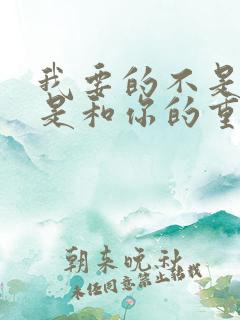 我要的不是
是和你的重
朝来晚秋
未经同意禁止转载